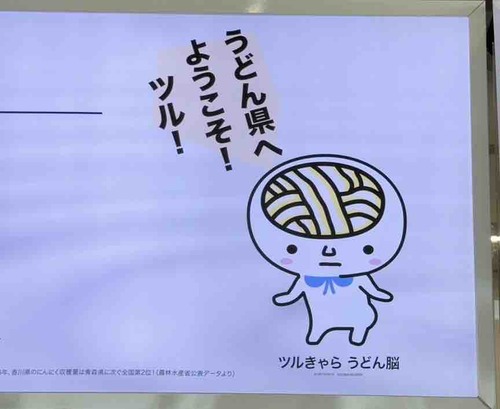 うどん県へ
ようこそ！
ツル！
ツルきゃら うどん脳
年、香川県のにんにく収穫量は青森県に次ぐ全国第2位！(農林水産省公表データより)